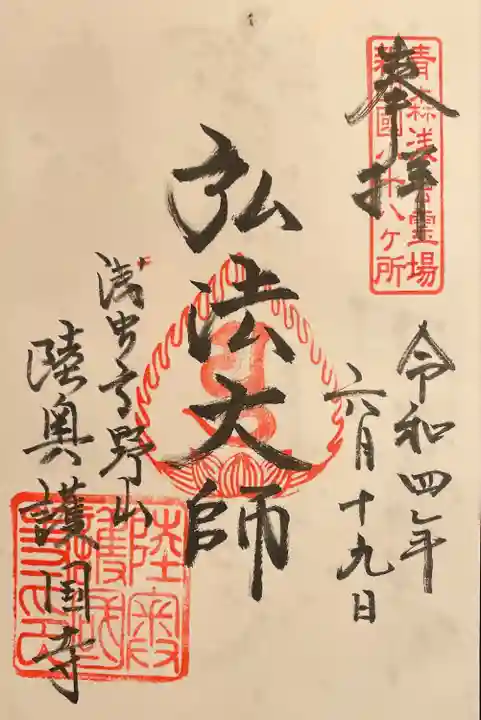 奉拝
青森浅虫霊場
新四国八十八ヶ所
令和四年
六月十九日
弘法大師
浅虫高野山
陸奥護国寺